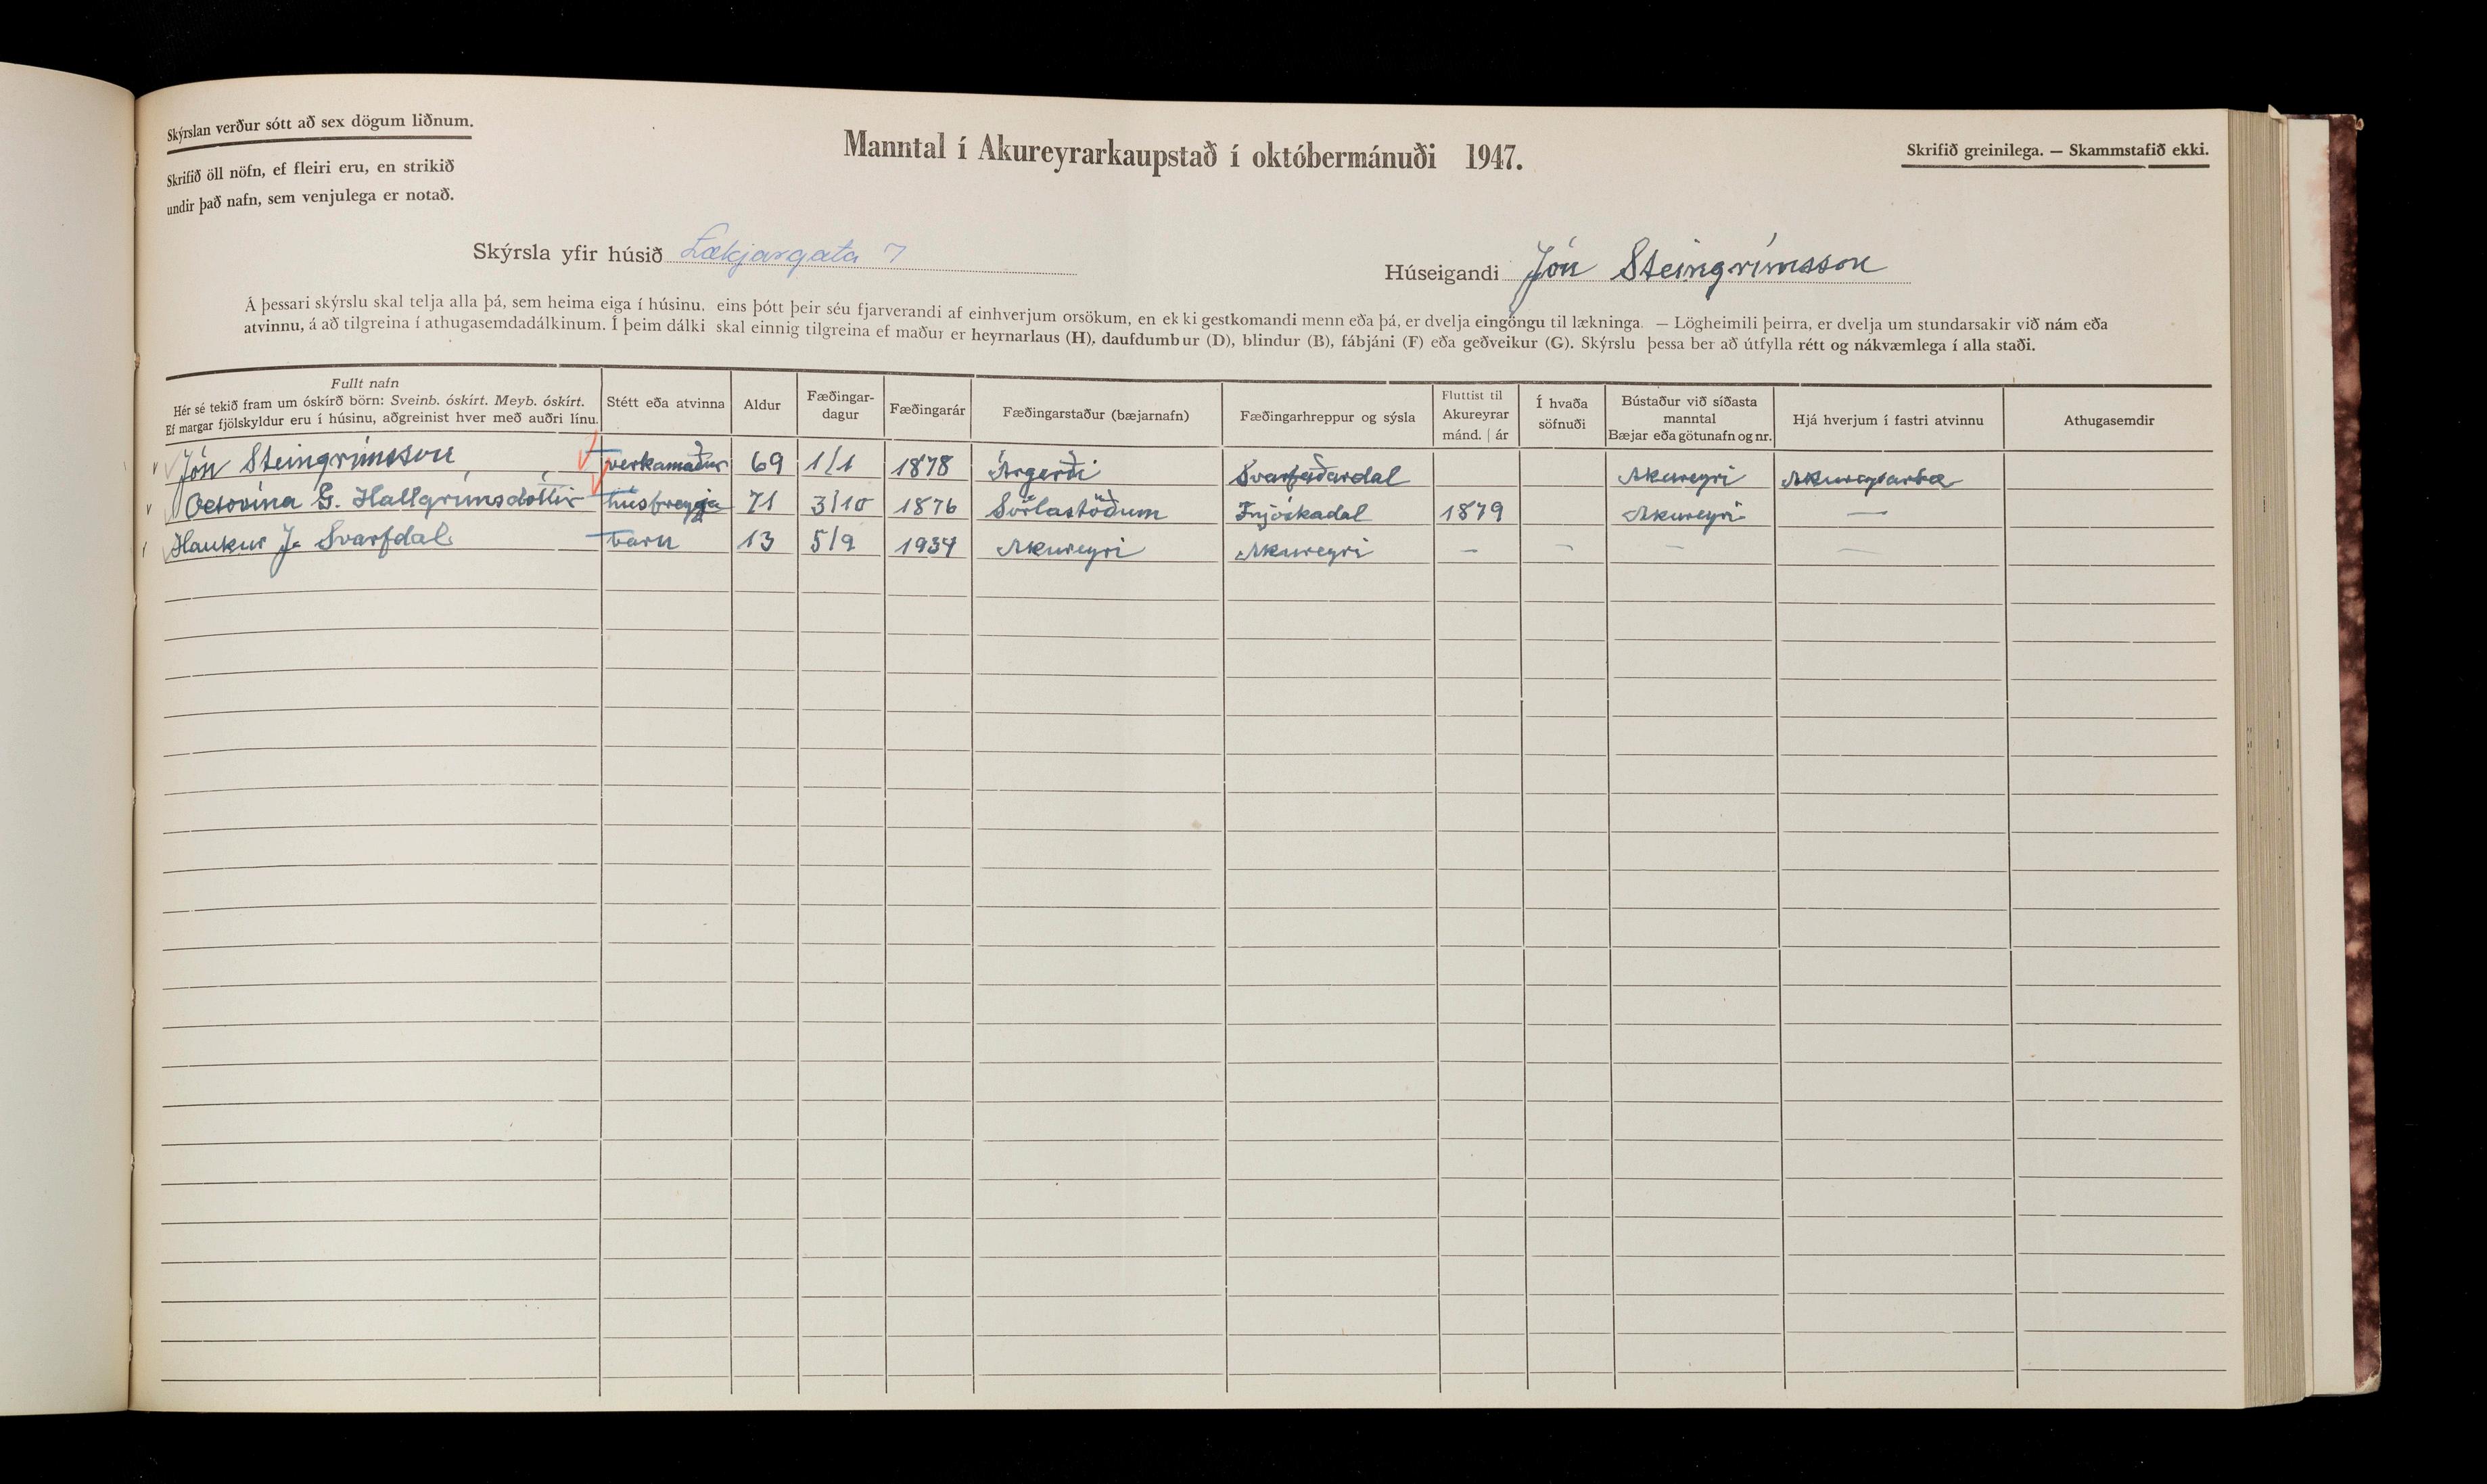 Skýrslan verður sótt að sex dögum liðnum.
Skrifið öll nöfn, ef fleiri eru, en strikið
undir það nafn, sem venjulega er notað.
Manntal í Akureyrarkaupstað í októbermánuði 1947.
Skrifið greinilega. — Skammstafið ekki.
Skýrsla yfir húsið Lækjargata 7
Húseigandi Jón Steingrímsson
Á þessari skýrslu skal telja alla þá, sem heima eiga í húsinu, eins þótt þeir séu fjarverandi af einhverjum orsökum, en ekki gestkomandi menn eða þá, er dvelja eingöngu til lækninga. — Lögheimili þeirra, er dvelja um stundarsakir við nám eða
atvinnu, á að tilgreina í athugasemdadálkinum. Í þeim dálki skal einnig tilgreina ef maður er heyrnarlaus (H), daufdumbur (D), blindur (B), fábjáni (F) eða geðveikur (G). Skýrslu þessa ber að útfylla rétt og nákvæmlega í alla staði.
Fullt nafn
Hér sé tekið fram um óskírð börn: Sveinb. óskírt. Meyb. óskírt.
Ef margar fjölskyldur eru í húsinu, aðgreinist hver með auðri línu.
Stétt eða atvinna
Aldur
Fæðingar-
dagur
Fæðingarár
Fæðingarstaður (bæjarnafn)
Fæðingarhreppur og sýsla
Fluttist til
Akureyrar
mánd. | ár
Í hvaða
söfnuði
Bústaður við síðasta
manntal
Bæjar eða götunafn og nr.
Hjá hverjum í fastri atvinnu
Athugasemdir
Jón Steingrímsson verkamaður 69 1/1 1878 Árgerði Svarfaðardal Akureyri Akureyrarbæ
Octovína G. Hallgrímsdóttir húsfreyja 71 3/10 1876 Sörlastöðum Fnjóskadal 1879 Akureyri —
Haukur J. Svarfdal barn 13 5/9 1934 Akureyri Akureyri — — — —